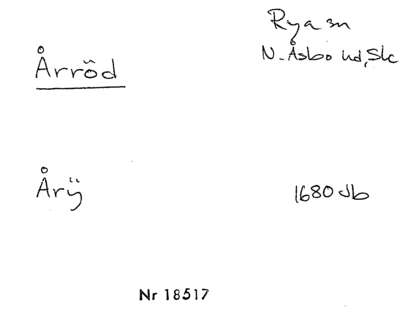 Årröd
Rya sn
N. Åsbo hd, Slc
Årÿ
1680 Jb
Nr 18517